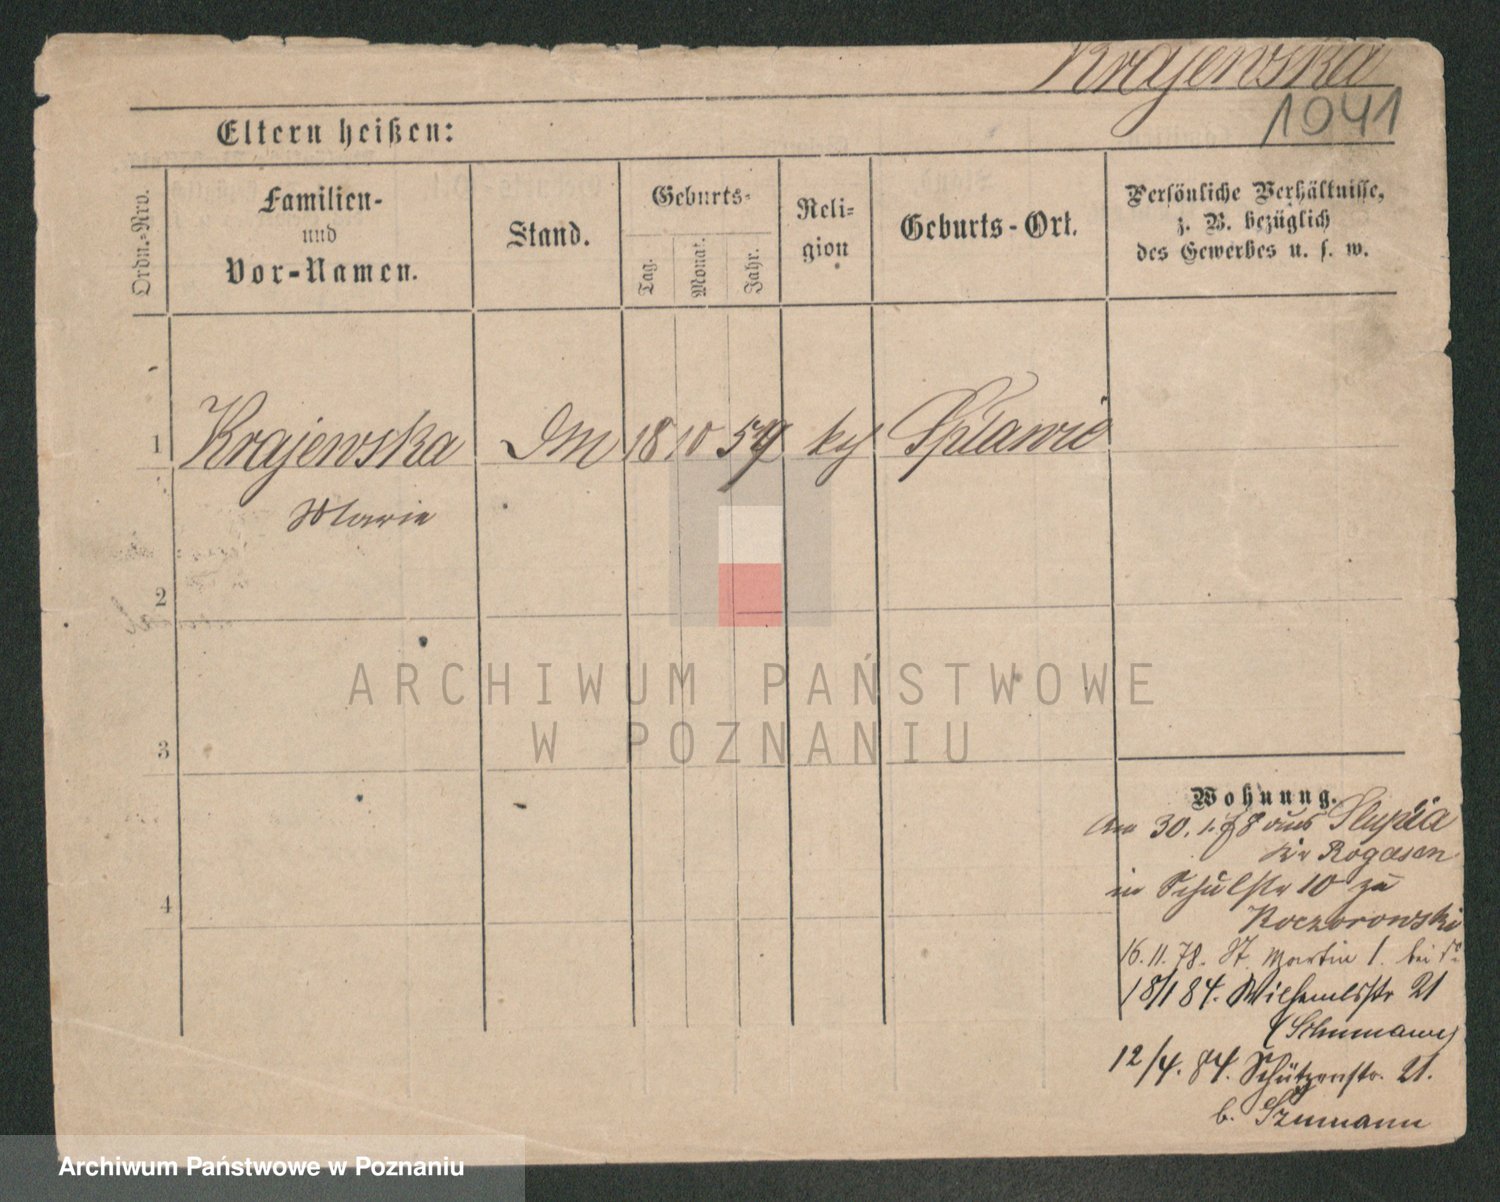 Krajewska
1041
Eltern heißen:
Ordn.-Nro.
Familien-
und
Vor-Namen.
Stand.
Geburts-
Tag.
Monat.
Jahr.
Reli-
gion
Geburts-Ort.
Persönliche Verhältnisse,
z. B. bezüglich
des Gewerbes u. s. w.
1 Krajewska 18 10 Spławie
Marie
2
3
4
Wohnung.
30. 1. 78 aus Slupia
Kr Rogasen
in Schulstr 10 zu
Koczorowski
16. 11. 78. St. Martin 1. bei
18/1 84. Wilhemlsstr 21
12/4. 84. Schützenstr. 21.
b. Szumann
ARCHIWUM PAŃSTWOWE
W POZNANIU
Archiwum Państwowe w Poznaniu